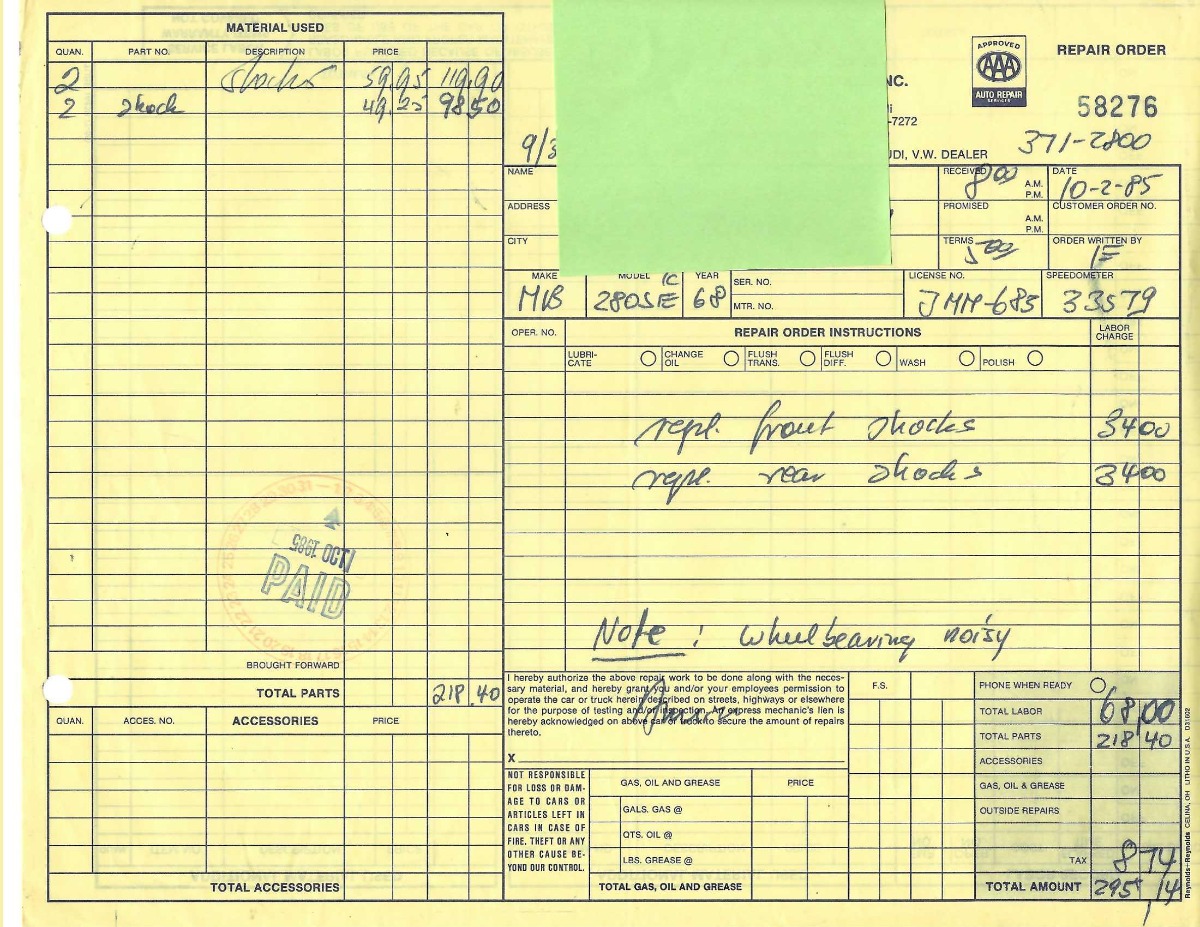 MATERIAL USED
QUAN. PART NO. DESCRIPTION PRICE
2 shocks 59.95 119.90
2 shock 49.25 98.50
BROUGHT FORWARD
TOTAL PARTS 218.40
QUAN. ACCES. NO. ACCESSORIES PRICE
TOTAL ACCESSORIES
OCT 1985
PAID
APPROVED
AAA
AUTO REPAIR
SERVICES
REPAIR ORDER
NC.
58276
-7272
371-2800
9/3
UDI, V.W. DEALER
NAME
RECEIVED 8 00 A.M. P.M.
DATE 10-2-85
ADDRESS
PROMISED A.M. P.M.
CUSTOMER ORDER NO.
CITY
TERMS 5 00
ORDER WRITTEN BY
MAKE MODEL YEAR SER. NO. LICENSE NO. SPEEDOMETER
MB 280SE 68 MTR. NO. JMM-685 33579
OPER. NO. REPAIR ORDER INSTRUCTIONS LABOR CHARGE
LUBRI-CATE CHANGE OIL FLUSH TRANS. FLUSH DIFF. WASH POLISH
repl. front shocks 3400
repl. rear shocks 3400
Note : wheelbearing noisy
I hereby authorize the above repair work to be done along with the neces-
sary material, and hereby grant you and/or your employees permission to
operate the car or truck herein described on streets, highways or elsewhere
for the purpose of testing and/or inspection. An express mechanic's lien is
hereby acknowledged on above car or truck to secure the amount of repairs
thereto.
X
NOT RESPONSIBLE
FOR LOSS OR DAM-
AGE TO CARS OR
ARTICLES LEFT IN
CARS IN CASE OF
FIRE. THEFT OR ANY
OTHER CAUSE BE-
YOND OUR CONTROL.
GAS, OIL AND GREASE PRICE
GALS. GAS @
QTS. OIL @
LBS. GREASE @
TOTAL GAS, OIL AND GREASE
F.S.
PHONE WHEN READY
TOTAL LABOR 68,00
TOTAL PARTS 218 40
ACCESSORIES
GAS, OIL & GREASE
OUTSIDE REPAIRS
TAX 8 74
TOTAL AMOUNT 295 14
Reynolds+Reynolds CELINA, OH LITHO IN U.S.A.